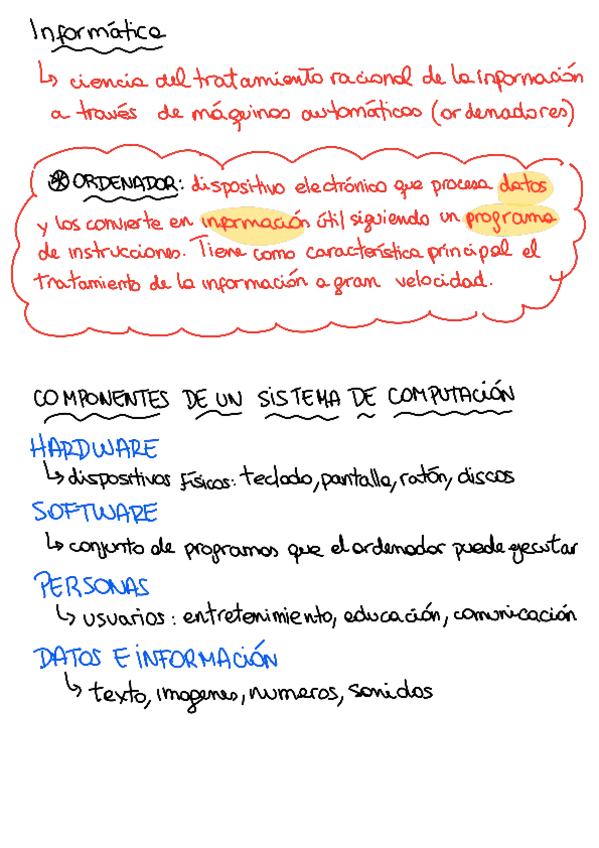 Informática
↳ ciencia del tratamiento racional de la información
a través de máquinas automáticas (ordenadores)
⊛ ORDENADOR: dispositivo electrónico que procesa datos
y los convierte en información útil siguiendo un programa
de instrucciones. Tiene como característica principal el
tratamiento de la información a gran velocidad.
COMPONENTES DE UN SISTEMA DE COMPUTACIÓN
HARDWARE
↳ dispositivos físicos: teclado, pantalla, ratón, discos
SOFTWARE
↳ conjunto de programas que el ordenador puede ejecutar
PERSONAS
↳ usuarios: entretenimiento, educación, comunicación
DATOS E INFORMACIÓN
↳ texto, imagenes, numeros, sonidos